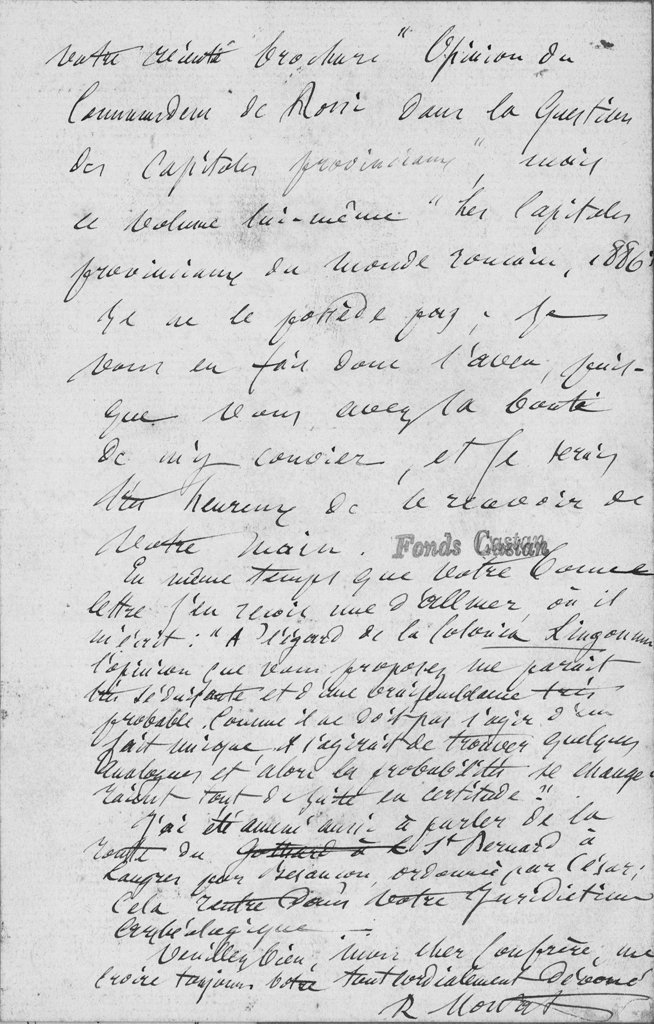 votre récente brochure "Opinion du
Commandeur de Rossi dans la Question
des Capitoles provinciaux", mais
le volume lui-même "Les Capitoles
provinciaux du monde romain, 1886"
Je ne le possède pas; je
vous en fais donc l'aveu, puis-
que vous avez la bonté
de m'y convier, et je serais
très heureux de le recevoir de
votre main.
Fonds Castan
En même temps que votre bonne
lettre j'en reçois une d'Allmer, où il
m'écrit: "A l'égard de la Colonia Lingonum
l'opinion que vous proposez me paraît
très séduisante et d'une vraisemblance très
probable. Comme il ne doit pas s'agir d'un
fait unique, il s'agirait de trouver quelques
analogues et alors la probabilité se change-
raient tout de suite en certitude."
J'ai été amené aussi à parler de la
route du Gothard à le St Bernard à
Langres par Besançon, ordonnée par César;
cela rentre dans votre Juridiction
archéologique —
Veuillez bien, mon cher Confrère, me
croire toujours votre tout cordialement dévoué
R. Mowat